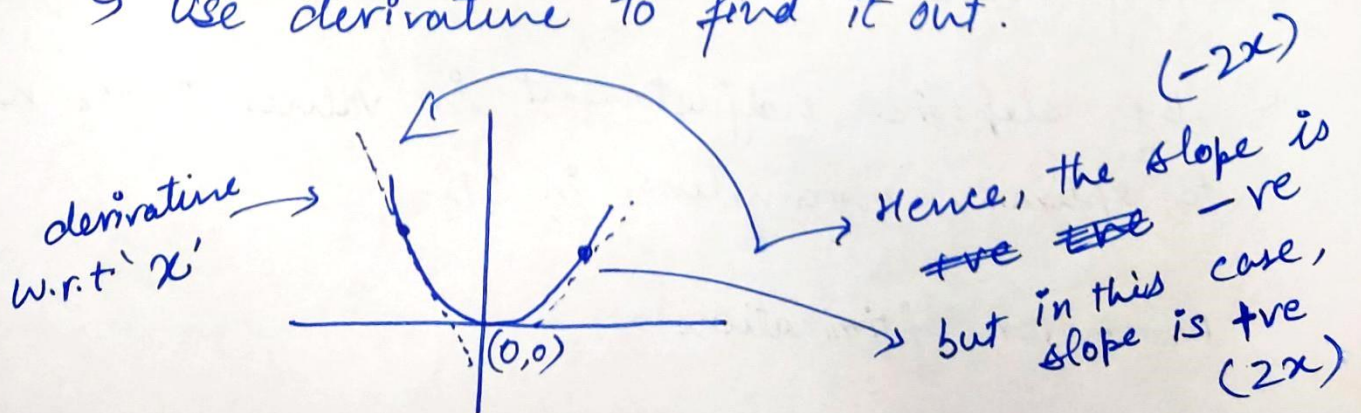 → Use derivative to find it out.
(-2x)
derivative
w.r.t 'x'
→ Hence, the slope is
+ve the -ve
but in this case,
slope is +ve
(2x)
(0,0)